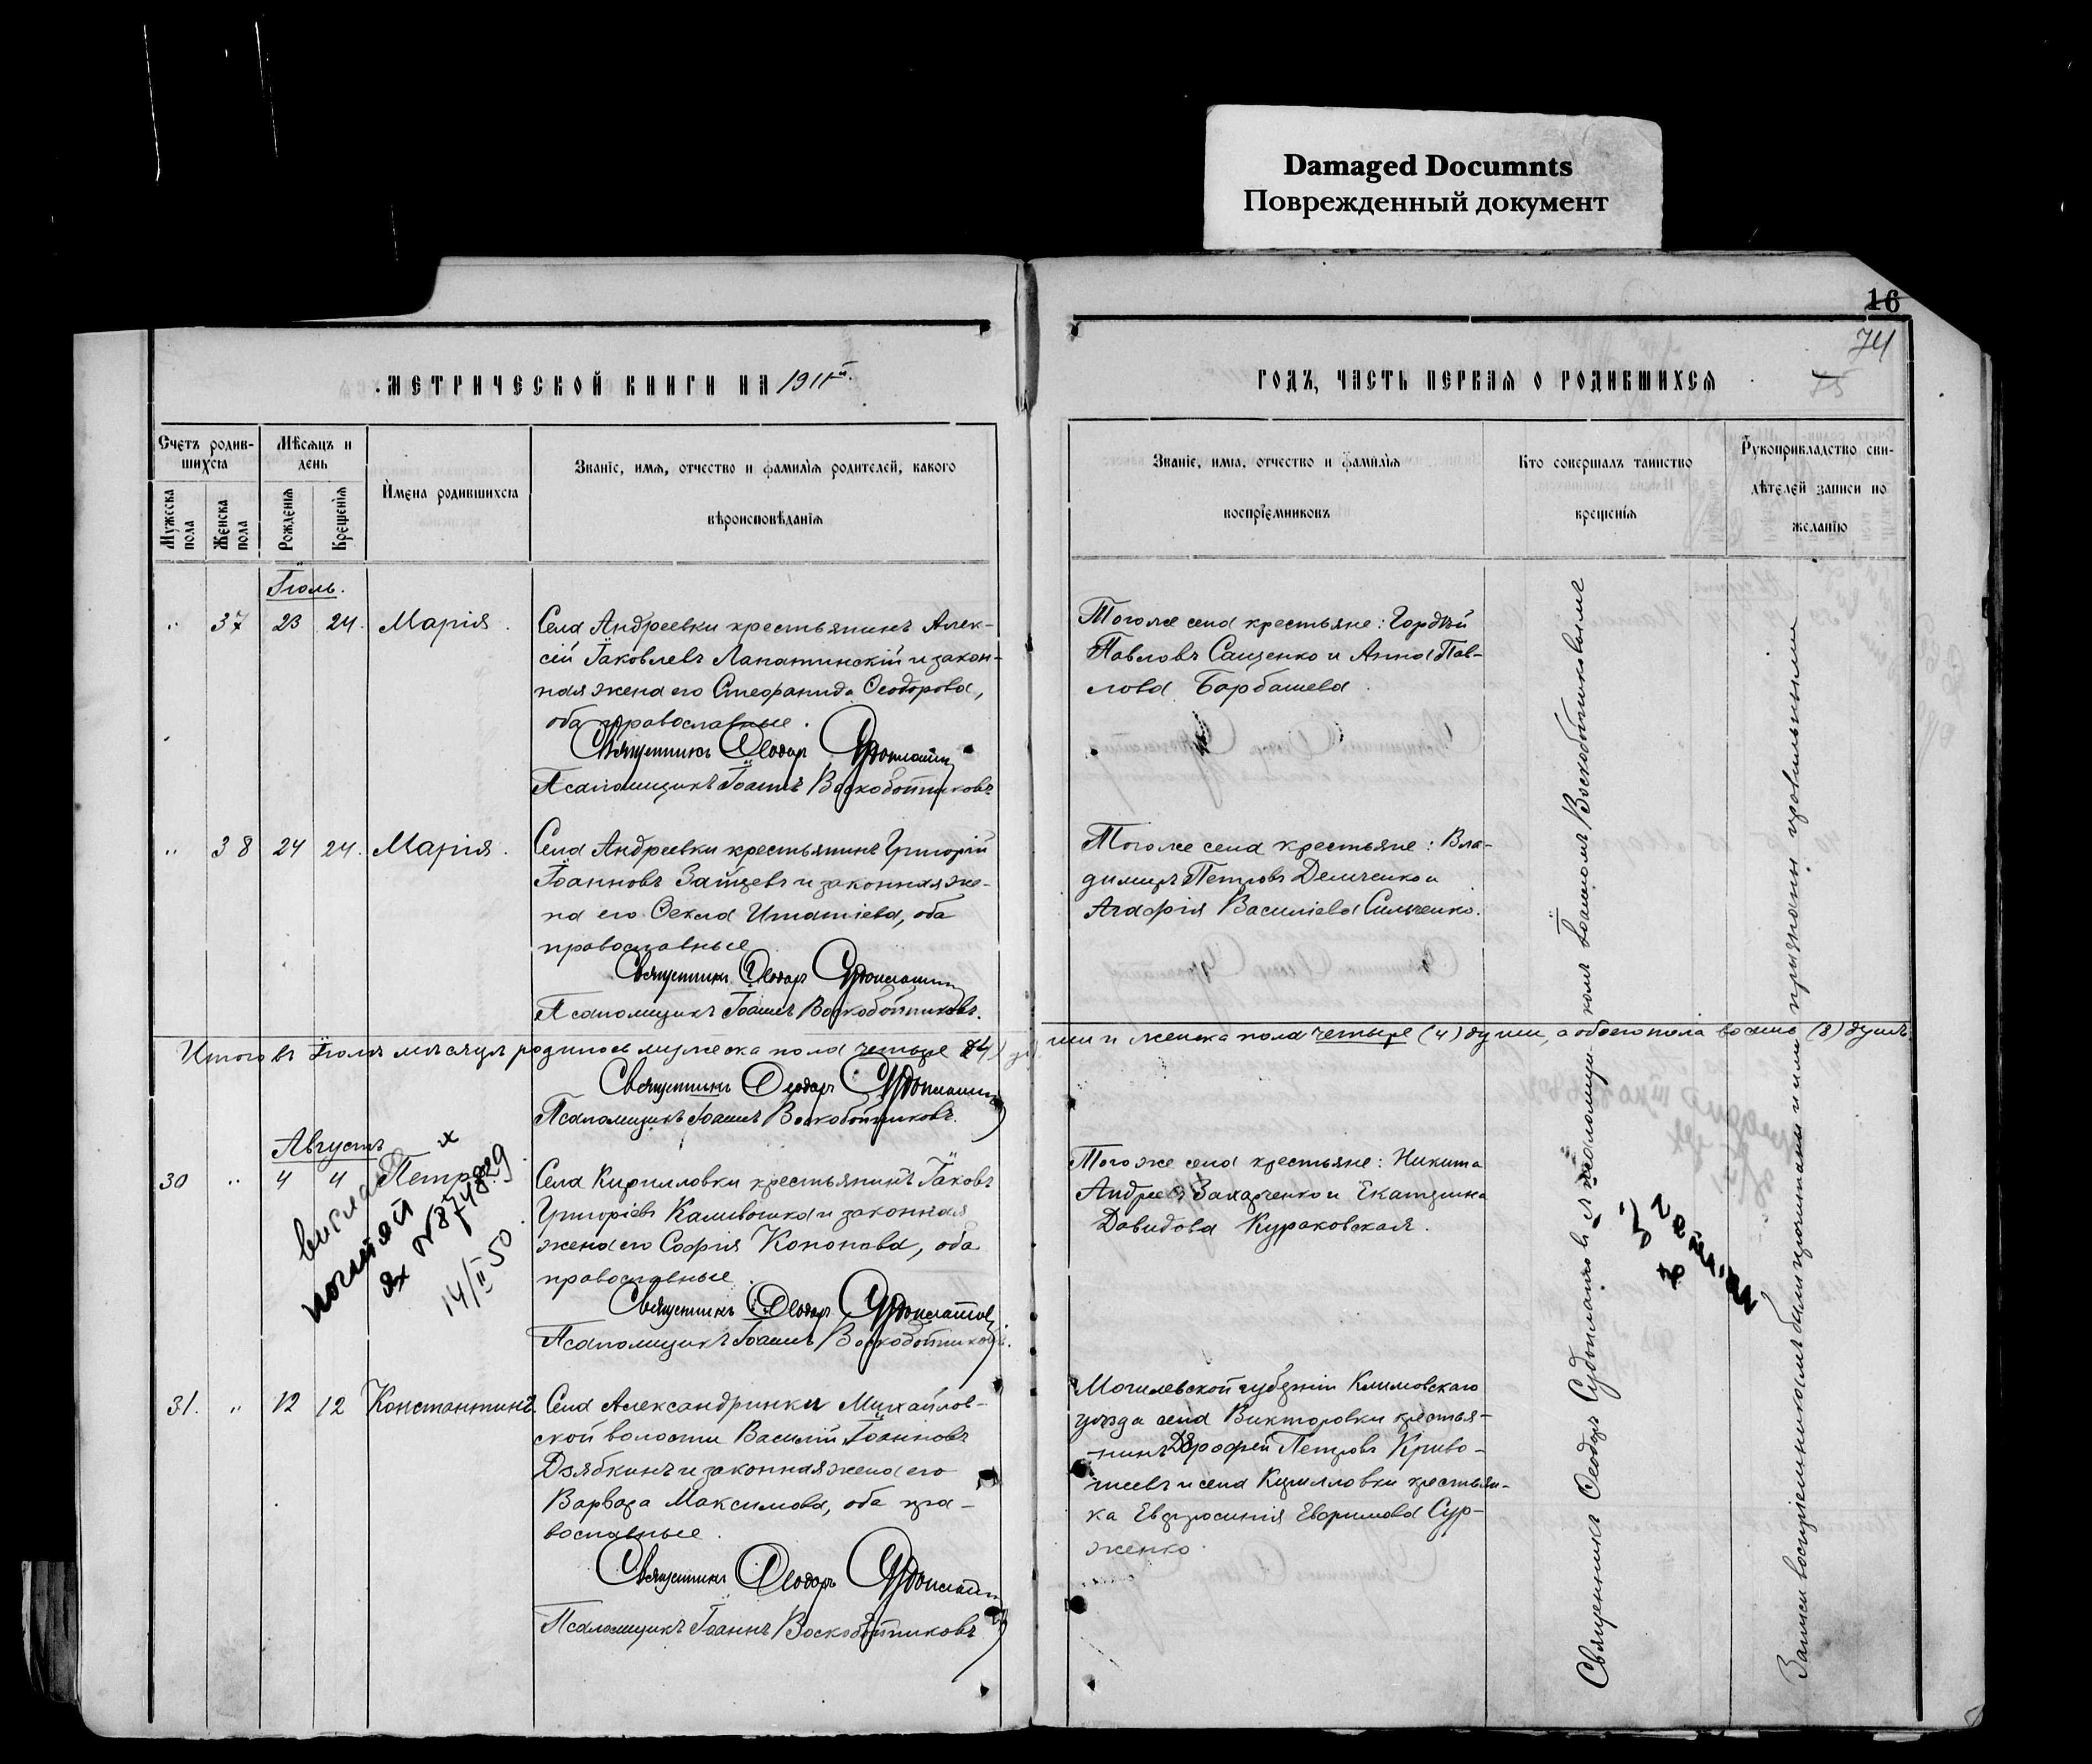 Damaged Documnts
Поврежденный документ
16
74
МЕТРИЧЕСКОЙ КНИГИ НА 1911й.
ГОДЪ, ЧАСТЬ ПЕРВАЯ О РОДИВШИХСЯ
Счетъ родив-
шихся
Мужеска пола
Женска пола
Мѣсяцъ и
день
Рожденія
Крещенія
Имена родившихся
Званіе, имя, отчество и фамилія родителей, какого
вѣроисповѣданія
Званіе, имя, отчество и фамилія
воспріемниковъ
Кто совершалъ таинство
крещенія
Рукоприкладство сви-
дѣтелей записи по
желанію
Іюль.
" 37 23 24. Марія.
Села Андреевки крестьянинъ Алек-
сій Іаковлевъ Лапатинскій и закон-
ная жена его Стефанида Ѳеодорова,
оба православные.
Священникъ Ѳеодоръ
Псаломщикъ Іоаннъ Воскобойниковъ
Тогоже села крестьяне: Гордѣй
Павловъ Саценко и Анна Пав-
лова Барбашева.
" 38 24 24. Марія.
Села Андреевки крестьянинъ Григорій
Іоанновъ Зайцевъ и законная же-
на его Ѳекла Игнатіева, оба
православные
Священникъ Ѳеодоръ
Псаломщикъ Іоаннъ Воскобойниковъ.
Тогоже села крестьяне: Вла-
димиръ Петровъ Демченко и
Агафія Василіева Сильченко.
Итого въ Іюлѣ мѣсяцѣ родилось мужеска пола четыре (4) души и женска пола четыре (4) души, а обоего пола восемь (8) душъ.
Священникъ Ѳеодоръ
Псаломщикъ Іоаннъ Воскобойниковъ.
Августъ
30 " 4 4 Петръ
14/II 50
Села Кирилловки крестьянинъ Іаковъ
Григоріевъ Каливошка и законная
жена его Софія Кононова, оба
православные.
Священникъ Ѳеодоръ
Псаломщикъ Іоаннъ Воскобойниковъ.
Тогоже села крестьяне: Никита
Андреевъ Захарченко и Екатерина
Давидова Кураковская.
31. " 12 12 Константинъ.
Села Александринки Михайлов-
ской волости Василій Іоанновъ
Дзябкинъ и законная жена его
Варвара Максимова, оба пра-
вославные.
Священникъ Ѳеодоръ
Псаломщикъ Іоаннъ Воскобойниковъ
Могилевской губерніи Климовскаго
уѣзда села Викторовки крестья-
нинъ Дорофей Петровъ Криво-
шеевъ и села Кирилловки крестьян-
ка Евфросинія Евфимова Сур-
женко.
Священникъ Ѳеодоръ съ псаломщикомъ Іоанномъ Воскобойниковымъ
Записи воспріемникомъ были прочитаны и ими признаны правильными